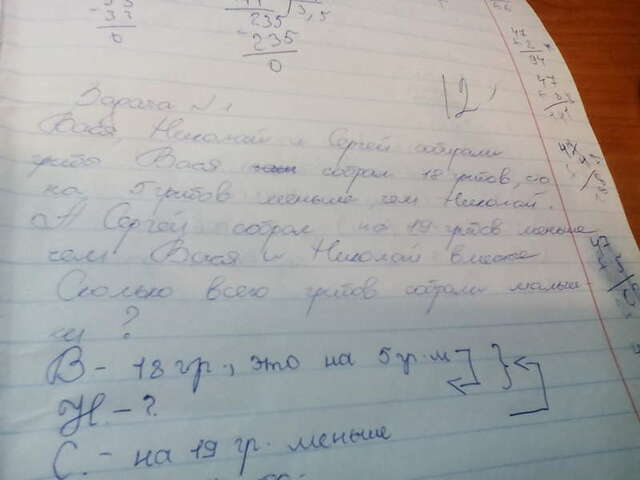 - 33
0
235 | 3,5
- 235
0
12
47
94
47
Задача №1
Вася, Николай и Сергей собирали
грибы Вася собрал 18 грибов, это
на 5 грибов меньше чем Николай.
А Сергей собрал на 19 грибов меньше
чем Вася и Николай вместе
Сколько всего грибов собрали мальчи-
ки ?
В - 18 гр., это на 5 гр. м
Н. - ?
С. - на 19 гр. меньше